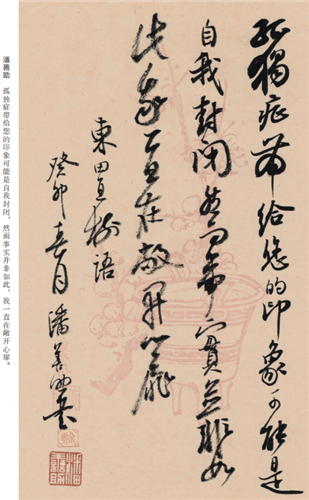 孤獨症帶給您的印象可能是
自我封閉然而事實並非如
此我一直在敞開心扉
東田直樹語
癸卯春月潘善助書
潘善助 孤独症带给您的印象可能是自我封闭，然而事实并非如此，我一直在敞开心扉。